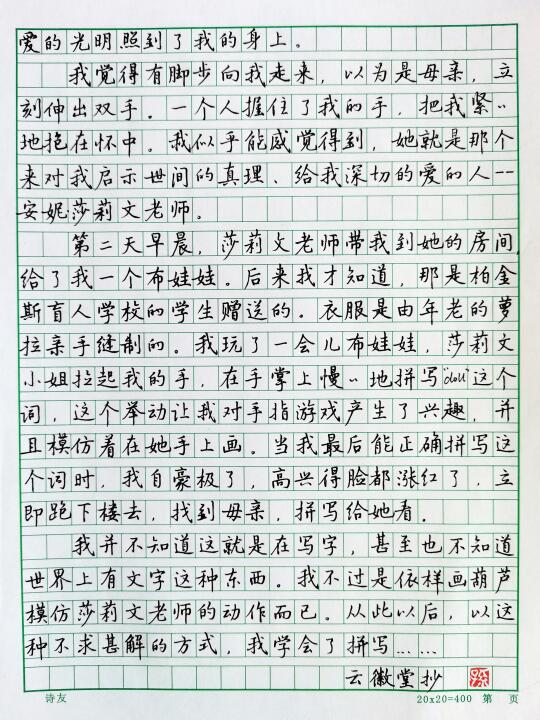 爱的光明照到了我的身上。
我觉得有脚步向我走来，以为是母亲，立
刻伸出双手。一个人握住了我的手，把我紧〃
地抱在怀中。我似乎能感觉得到，她就是那个
来对我启示世间的真理、给我深切的爱的人--
安妮莎莉文老师。
第二天早晨，莎莉文老师带我到她的房间，
给了我一个布娃娃。后来我才知道，那是柏金
斯盲人学校的学生赠送的。衣服是由年老的萝
拉亲手缝制的。我玩了一会儿布娃娃，莎莉文
小姐拉起我的手，在手掌上慢〃地拼写"doll"这个
词，这个举动让我对手指游戏产生了兴趣，并
且模仿着在她手上画。当我最后能正确拼写这
个词时，我自豪极了，高兴得脸都涨红了，立
即跑下楼去，找到母亲，拼写给她看。
我并不知道这就是在写字，甚至也不知道
世界上有文字这种东西。我不过是依样画葫芦
模仿莎莉文老师的动作而已。从此以后，以这
种不求甚解的方式，我学会了拼写……
云徽堂抄
诗友 20x20=400 第 页